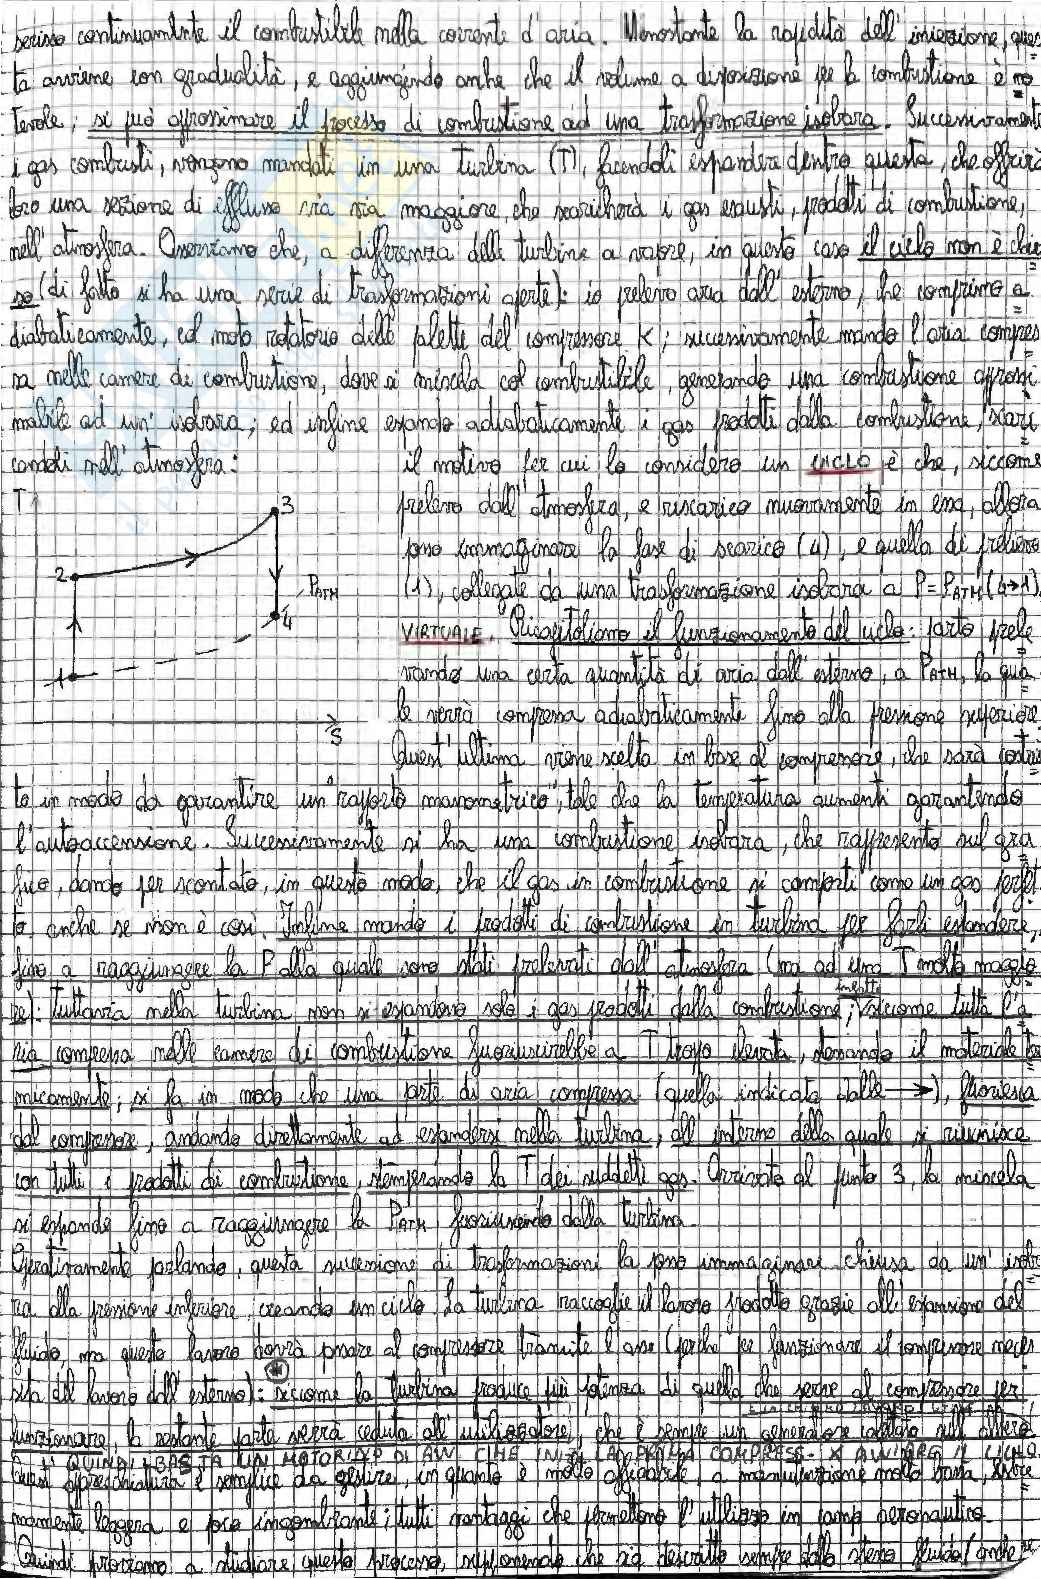 serisco continuamente il combustibile nella corrente d'aria. Nonostante la rapidità dell'iniezione, ques
ta avviene con gradualità, e aggiungendo anche che il volume a disposizione per la combustione è no
tevole, si può approssimare il processo di combustione ad una trasformazione isobara. Successivamente
i gas combusti, vengono mandati in una turbina (T), facendoli espandere dentro questa, che offrirà
loro una sezione di efflusso via via maggiore, che scaricherà i gas esausti, prodotti di combustione,
nell'atmosfera. Osserviamo che, a differenza delle turbine a vapore, in questo caso il ciclo non è chiu
so (di fatto si ha una serie di trasformazioni aperte): io prelevo aria dall'esterno, che comprimo a
diabaticamente, col moto rotatorio delle palette del compressore K; successivamente mando l'aria compres
sa nelle camere di combustione, dove si miscela col combustibile, generando una combustione approssi
mabile ad un'isobara; ed infine espando adiabaticamente i gas prodotti dalla combustione, scari
candoli nell'atmosfera:
il motivo per cui lo considero un CICLO è che, siccome
prelevo dall'atmosfera, e riscarico nuovamente in essa, allora
posso immaginare la fase di scarico (4), e quella di prelievo
(1), collegate da una trasformazione isobara a P=PATM (4→1)
VIRTUALE. Ricapitoliamo il funzionamento del ciclo: parto prele
vando una certa quantità di aria dall'esterno, a PATM, la qua
le verrà compressa adiabaticamente fino alla pressione superiore.
Quest'ultima viene scelta in base al compressore, che sarà costrui
T
3
2
PATM
4
1
S
to in modo da garantire un "rapporto manometrico", tale che la temperatura aumenti garantendo
l'autoaccensione. Successivamente si ha una combustione isobara, che rappresento sul gra
fico, dando per scontato, in questo modo, che il gas in combustione si comporti come un gas perfet
to, anche se non è così. Infine mando i prodotti di combustione in turbina per farli espandere,
fino a raggiungere la P alla quale sono stati prelevati dall'atmosfera (ma ad una T molto maggio
re). Tuttavia nella turbina non si espandono solo i gas prodotti dalla combustione; infatti, siccome tutta l'a
ria compressa nelle camere di combustione fuoriuscirebbe a T troppo elevata, stressando il materiale ter
micamente; si fa in modo che una parte di aria compressa (quella indicata dalle →), fuoriesca
dal compressore, andando direttamente ad espandersi nella turbina, all'interno della quale si riunisce
con tutti i prodotti di combustione, stemperando la T dei suddetti gas. Arrivata al punto 3, la miscela
si espande fino a raggiungere la PATM, fuoriuscendo dalla turbina.
Operativamente parlando, questa successione di trasformazioni la posso immaginare chiusa da un'isoba
ra alla pressione inferiore, creando un ciclo. La turbina raccoglie il lavoro prodotto grazie all'espansione del
fluido, ma questo lavoro dovrà passare al compressore tramite l'asse (perché per funzionare il compressore neces
sita del lavoro dall'esterno): siccome la turbina produce più potenza di quella che serve al compressore per
funzionare, la restante parte verrà ceduta all'utilizzatore, che è sempre un generatore calettato sull'albero.
QUINDI BASTA UN MOTORINO DI AVV. CHE INIZI LA PRIMA COMPRESS. X AVVIARE IL CICLO
Quest'apparecchiatura è semplice da gestire, in quanto è molto affidabile, a manutenzione molto bassa, estre
mamente leggera e poco ingombrante; tutti vantaggi che permettono l'utilizzo in campo aeronautico.
Quindi proviamo a studiare questo processo, supponendo che sia descritto sempre dallo stesso fluido (anche se